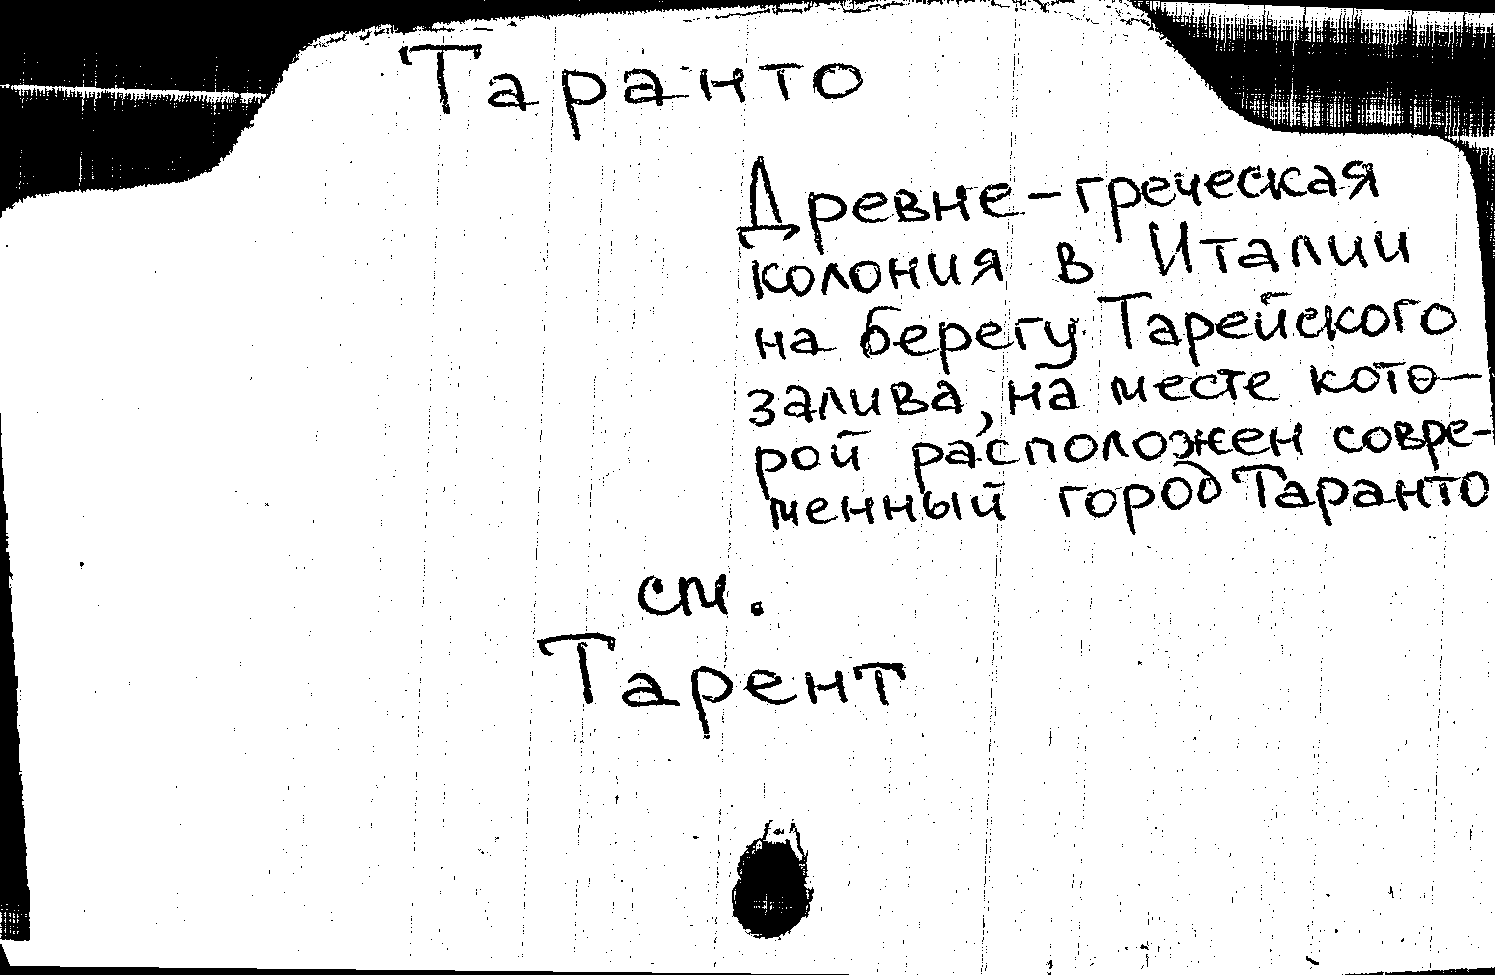 Таранто
Древне-греческая
колония в Италии
на берегу Тарейского
залива, на месте кото-
рой расположен совре-
менный город Таранто
см.
Тарент